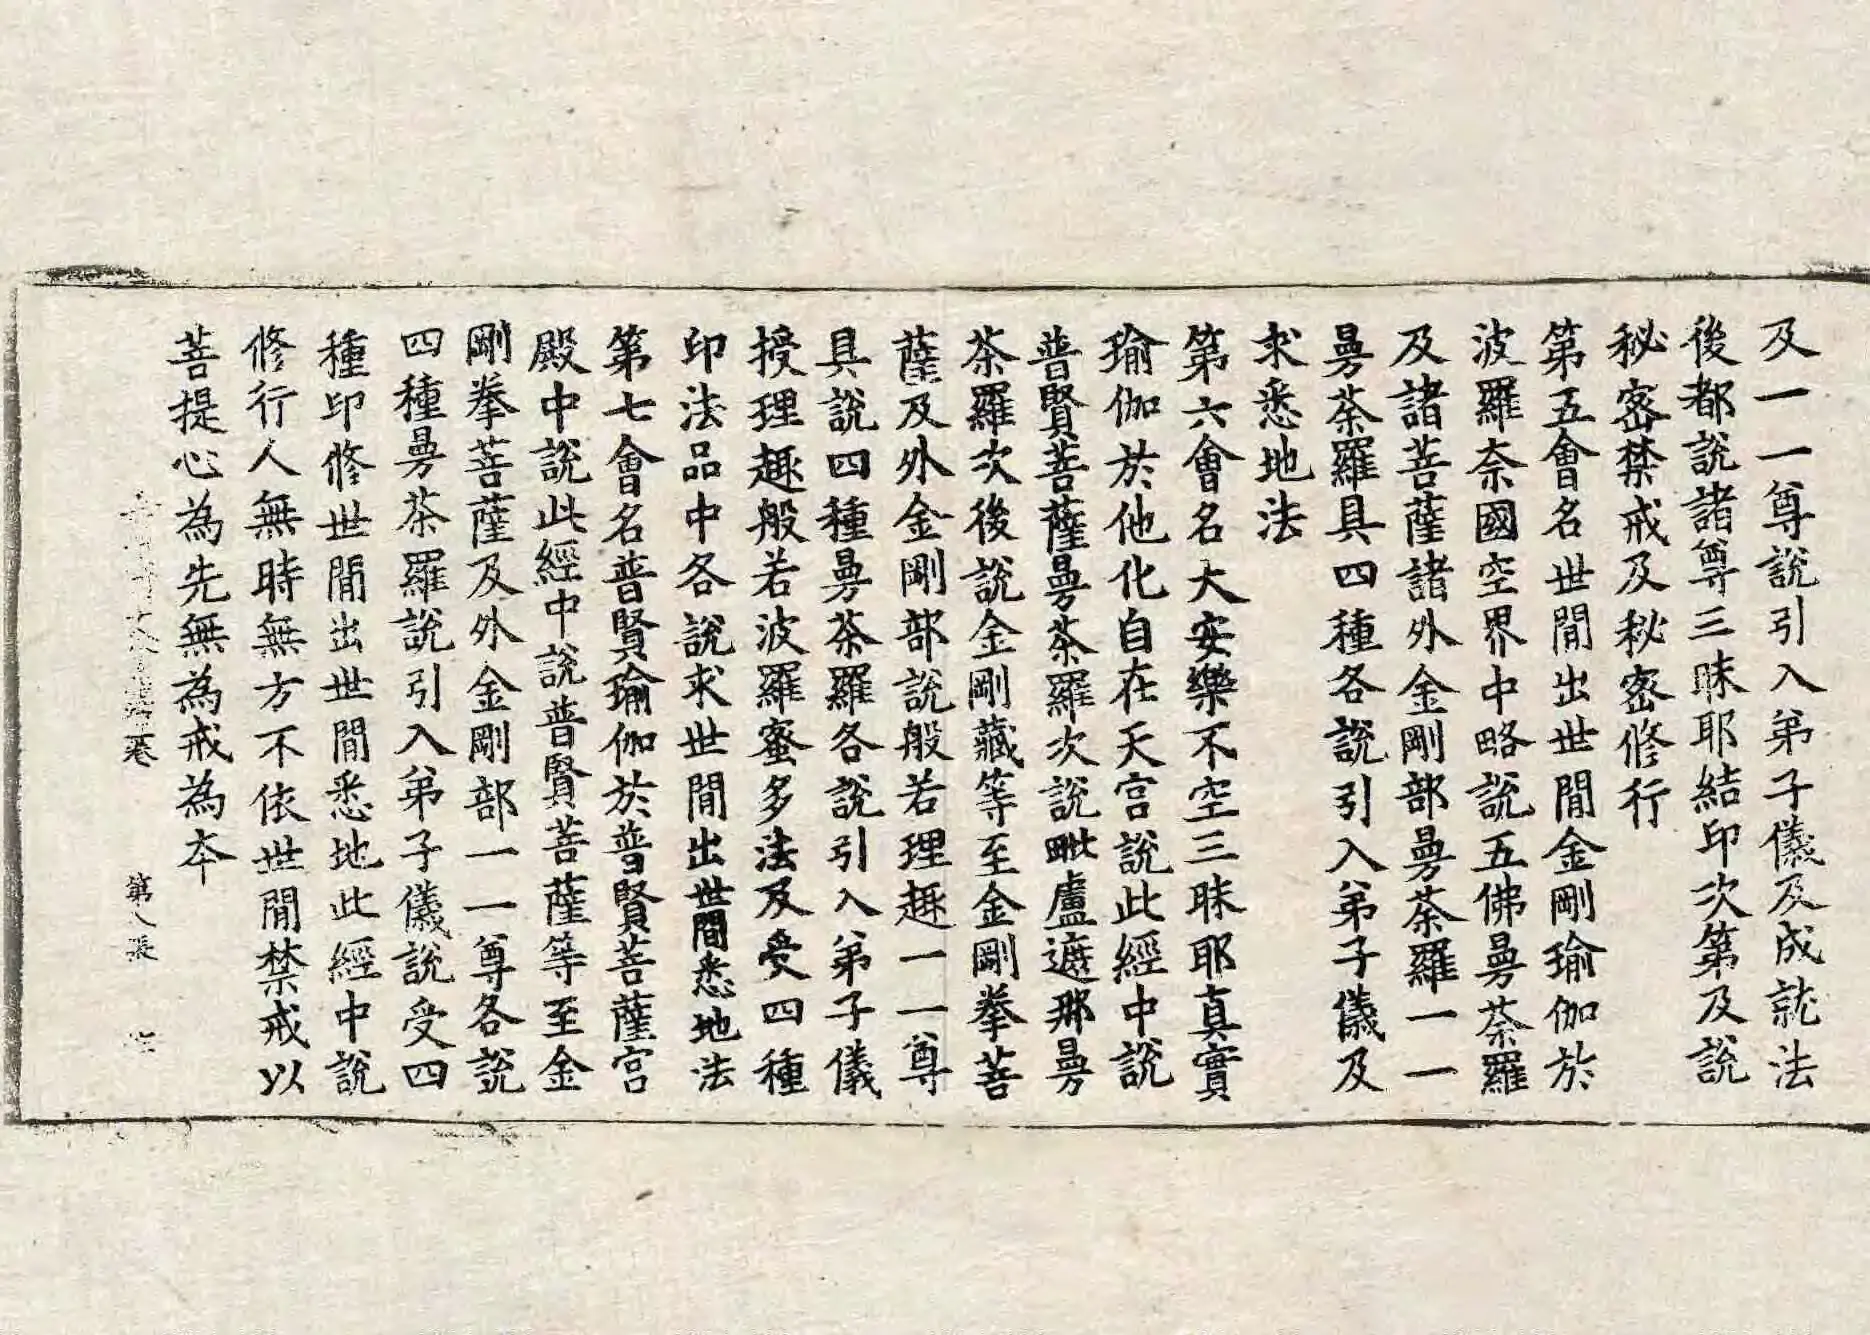 及一一尊說引入弟子儀及成就法
後都說諸尊三昧耶結印次第及說
秘密禁戒及秘密修行
第五會名世間出世間金剛瑜伽於
波羅柰國空界中略說五佛曼荼羅
及諸菩薩諸外金剛部曼荼羅一一
曼荼羅具四種各說引入弟子儀及
求悉地法
第六會名大安樂不空三昧耶真實
瑜伽於他化自在天宮說此經中說
普賢菩薩曼荼羅次說毗盧遮那曼
荼羅次後說金剛藏等至金剛拳菩
薩及外金剛部說般若理趣一一尊
具說四種曼荼羅各說引入弟子儀
授理趣般若波羅蜜多法及受四種
印法品中各說求世間出世間悉地法
第七會名普賢瑜伽於普賢菩薩宮
殿中說此經中說普賢菩薩等至金
剛拳菩薩及外金剛部一一尊各說
四種曼荼羅說引入弟子儀說受四
種印修世間出世間悉地此經中說
修行人無時無方不依世間禁戒以
菩提心為先無為戒為本
卷 第八張